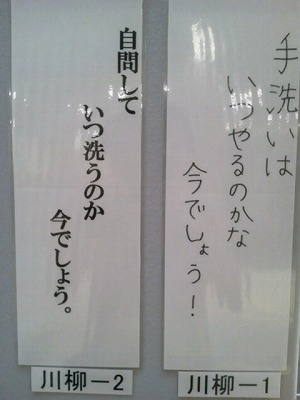 手洗いは
いつやるのかな
今でしょう!
川柳－1
自問して
いつ洗うのか
今でしょう。
川柳－2